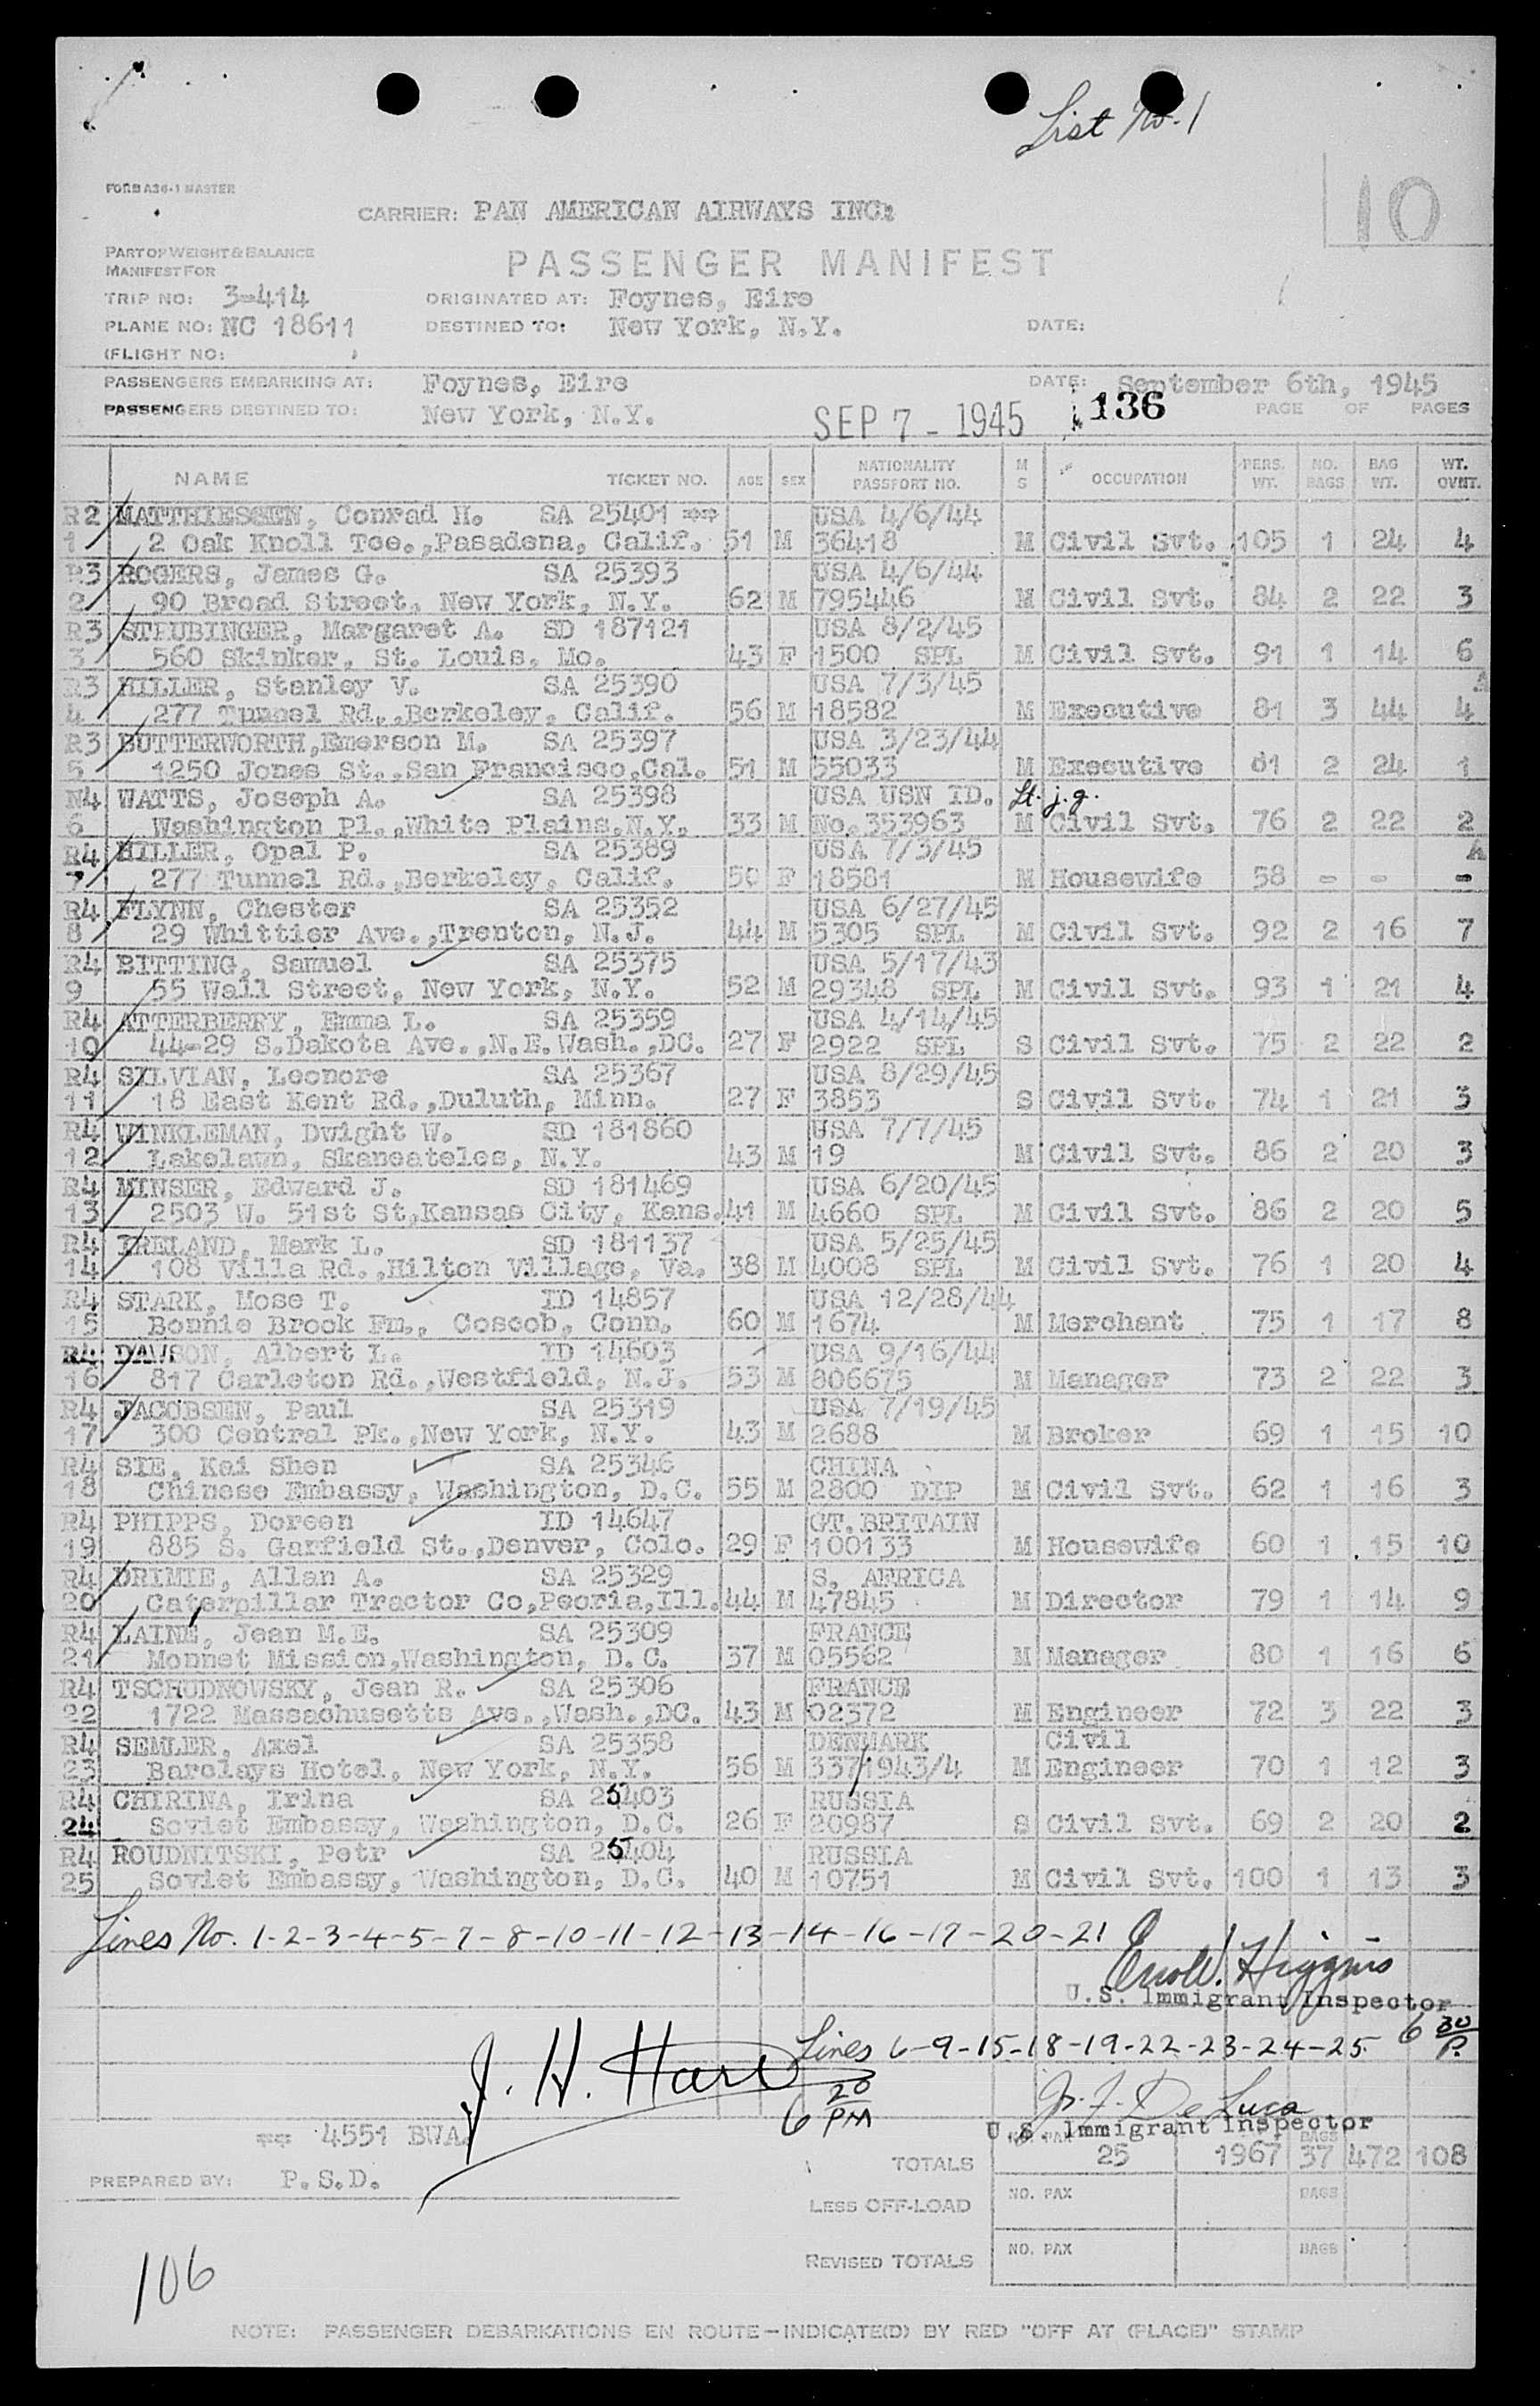 List No. 1
FORM A36-1 MASTER
10
CARRIER: PAN AMERICAN AIRWAYS INC.
PART OF WEIGHT & BALANCE
MANIFEST FOR
PASSENGER MANIFEST
TRIP NO: 3-414 ORIGINATED AT: Foynes, Eire
PLANE NO: NC 18611 DESTINED TO: New York, N.Y. DATE:
(FLIGHT NO: )
PASSENGERS EMBARKING AT: Foynes, Eire DATE: September 6th, 1945
PASSENGERS DESTINED TO: New York, N.Y. SEP 7 - 1945 136 PAGE OF PAGES
NAME TICKET NO. AGE SEX NATIONALITY PASSPORT NO. M S OCCUPATION PERS. WT. NO. BAGS BAG WT. WT. OVNT.
R2 MATTHIESSEN, Conrad H. SA 25401 ** USA 4/6/44
1 2 Oak Knoll Tce.,Pasadena, Calif. 51 M 36418 M Civil Svt. 105 1 24 4
R3 ROGERS, James G. SA 25393 USA 4/6/44
2 90 Broad Street, New York, N.Y. 62 M 795446 M Civil Svt. 84 2 22 3
R3 STRUBINGER, Margaret A. SD 187121 USA 8/2/45
3 560 Skinker, St. Louis, Mo. 43 F 1500 SPL M Civil Svt. 91 1 14 6
R3 HILLER, Stanley V. SA 25390 USA 7/3/45 A
4 277 Tunnel Rd.,Berkeley, Calif. 56 M 18582 M Executive 81 3 44 4
R3 BUTTERWORTH,Emerson M. SA 25397 USA 3/23/44
5 1250 Jones St.,San Francisco,Cal. 51 M 55033 M Executive 81 2 24 1
N4 WATTS, Joseph A. SA 25398 USA USN ID. Lt. j.g.
6 Washington Pl.,White Plains,N.Y. 33 M No.353963 M Civil Svt. 76 2 22 2
R4 HILLER, Opal P. SA 25389 USA 7/3/45 A
7 277 Tunnel Rd.,Berkeley, Calif. 50 F 18581 M Housewife 58 - - -
R4 FLYNN, Chester SA 25352 USA 6/27/45
8 29 Whittier Ave.,Trenton, N.J. 44 M 5305 SPL M Civil Svt. 92 2 16 7
R4 BITTING, Samuel SA 25375 USA 5/17/43
9 55 Wall Street, New York, N.Y. 52 M 29348 SPL M Civil Svt. 93 1 21 4
R4 ATTERBERRY, Emma L. SA 25359 USA 4/14/45
10 44-29 S.Dakota Ave.,N.E.Wash.,DC. 27 F 2922 SPL S Civil Svt. 75 2 22 2
R4 SILVIAN, Leonore SA 25367 USA 8/29/45
11 18 East Kent Rd.,Duluth, Minn. 27 F 3853 S Civil Svt. 74 1 21 3
R4 WINKLEMAN, Dwight W. SD 181860 USA 7/7/45
12 Lakelawn, Skaneateles, N.Y. 43 M 19 M Civil Svt. 86 2 20 3
R4 MINSER, Edward J. SD 181469 USA 6/20/45
13 2503 W. 51st St,Kansas City, Kans. 41 M 4660 SPL M Civil Svt. 86 2 20 5
R4 IRELAND, Mark L. SD 181137 USA 5/25/45
14 108 Villa Rd.,Hilton Village, Va. 38 M 4008 SPL M Civil Svt. 76 1 20 4
R4 STARK, Mose T. ID 14857 USA 12/28/44
15 Bonnie Brook Fm., Coscob, Conn. 60 M 1674 M Merchant 75 1 17 8
R4 DAWSON, Albert L. ID 14603 USA 9/16/44
16 817 Carleton Rd.,Westfield, N.J. 53 M 806675 M Manager 73 2 22 3
R4 JACOBSEN, Paul SA 25319 USA 7/19/45
17 300 Central Pk.,New York, N.Y. 43 M 2688 M Broker 69 1 15 10
R4 SIE, Kai Shen SA 25346 CHINA
18 Chinese Embassy, Washington, D.C. 55 M 2800 DIP M Civil Svt. 62 1 16 3
R4 PHIPPS, Doreen ID 14647 GT.BRITAIN
19 885 S. Garfield St.,Denver, Colo. 29 F 100133 M Housewife 60 1 15 10
R4 DRIMIE, Allan A. SA 25329 S. AFRICA
20 Caterpillar Tractor Co,Peoria,Ill. 44 M 47845 M Director 79 1 14 9
R4 LAINÉ, Jean M.E. SA 25309 FRANCE
21 Monnet Mission,Washington, D.C. 37 M 05562 M Manager 80 1 16 6
R4 TSCHUDNOWSKY, Jean R. SA 25306 FRANCE
22 1722 Massachusetts Ave.,Wash.,DC. 43 M 02372 M Engineer 72 3 22 3
R4 SEMLER, Axel SA 25358 DENMARK Civil
23 Barclays Hotel, New York, N.Y. 56 M 337/1943/4 M Engineer 70 1 12 3
R4 CHIRINA, Irina SA 25403 RUSSIA
24 Soviet Embassy, Washington, D.C. 26 F 20987 S Civil Svt. 69 2 20 2
R4 ROUDNITSKI, Petr SA 25404 RUSSIA
25 Soviet Embassy, Washington, D.C. 40 M 10751 M Civil Svt. 100 1 13 3
Lines No. 1-2-3-4-5-7-8-10-11-12-13-14-16-17-20-21
Higgins
U.S. Immigrant Inspector
Lines 6-9-15-18-19-22-23-24-25 6 30 P.
J. H. Hare 6 20 PM
De Luca
U.S. Immigrant Inspector
** 4551 BWA.
NO. PAX BAGS
TOTALS 25 1967 37 472 108
PREPARED BY: P.S.D.
LESS OFF-LOAD NO. PAX BAGS
REVISED TOTALS NO. PAX BAGS
106
NOTE: PASSENGER DEBARKATIONS EN ROUTE-INDICATE(D) BY RED "OFF AT (PLACE)" STAMP